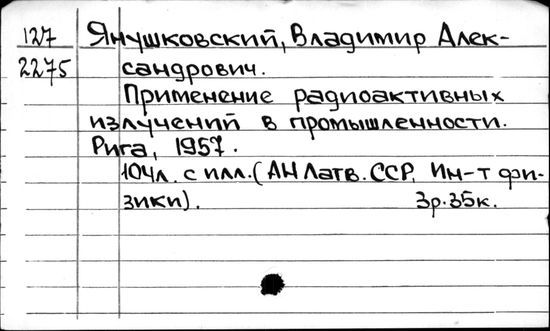 127 Янушковский, Владимир Алек-
2275 сандрович.
Применение радиоактивных
излучений в промышленности.
Рига, 1957.
104л. с илл. (АН Латв. ССР, Ин-т фи-
зики). 3р.35к.